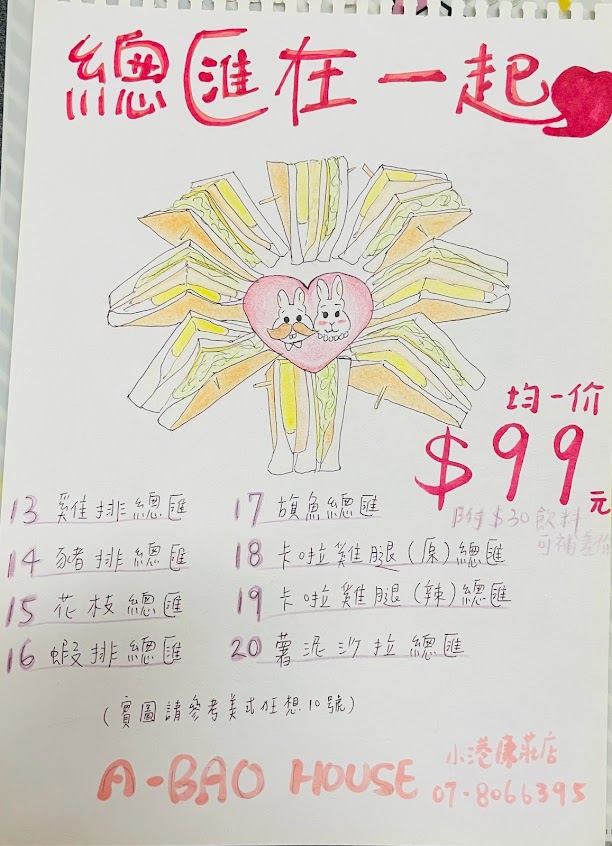 總匯在一起
均一价
$99元
附$30飲料
可補差价
13 雞排總匯
14 豬排總匯
15 花枝總匯
16 蝦排總匯
17 旗魚總匯
18 卡啦雞腿(原)總匯
19 卡啦雞腿(辣)總匯
20 薯泥沙拉總匯
(實圖請參考美式狂想10號)
A-BAO HOUSE
小港康莊店
07-8066395